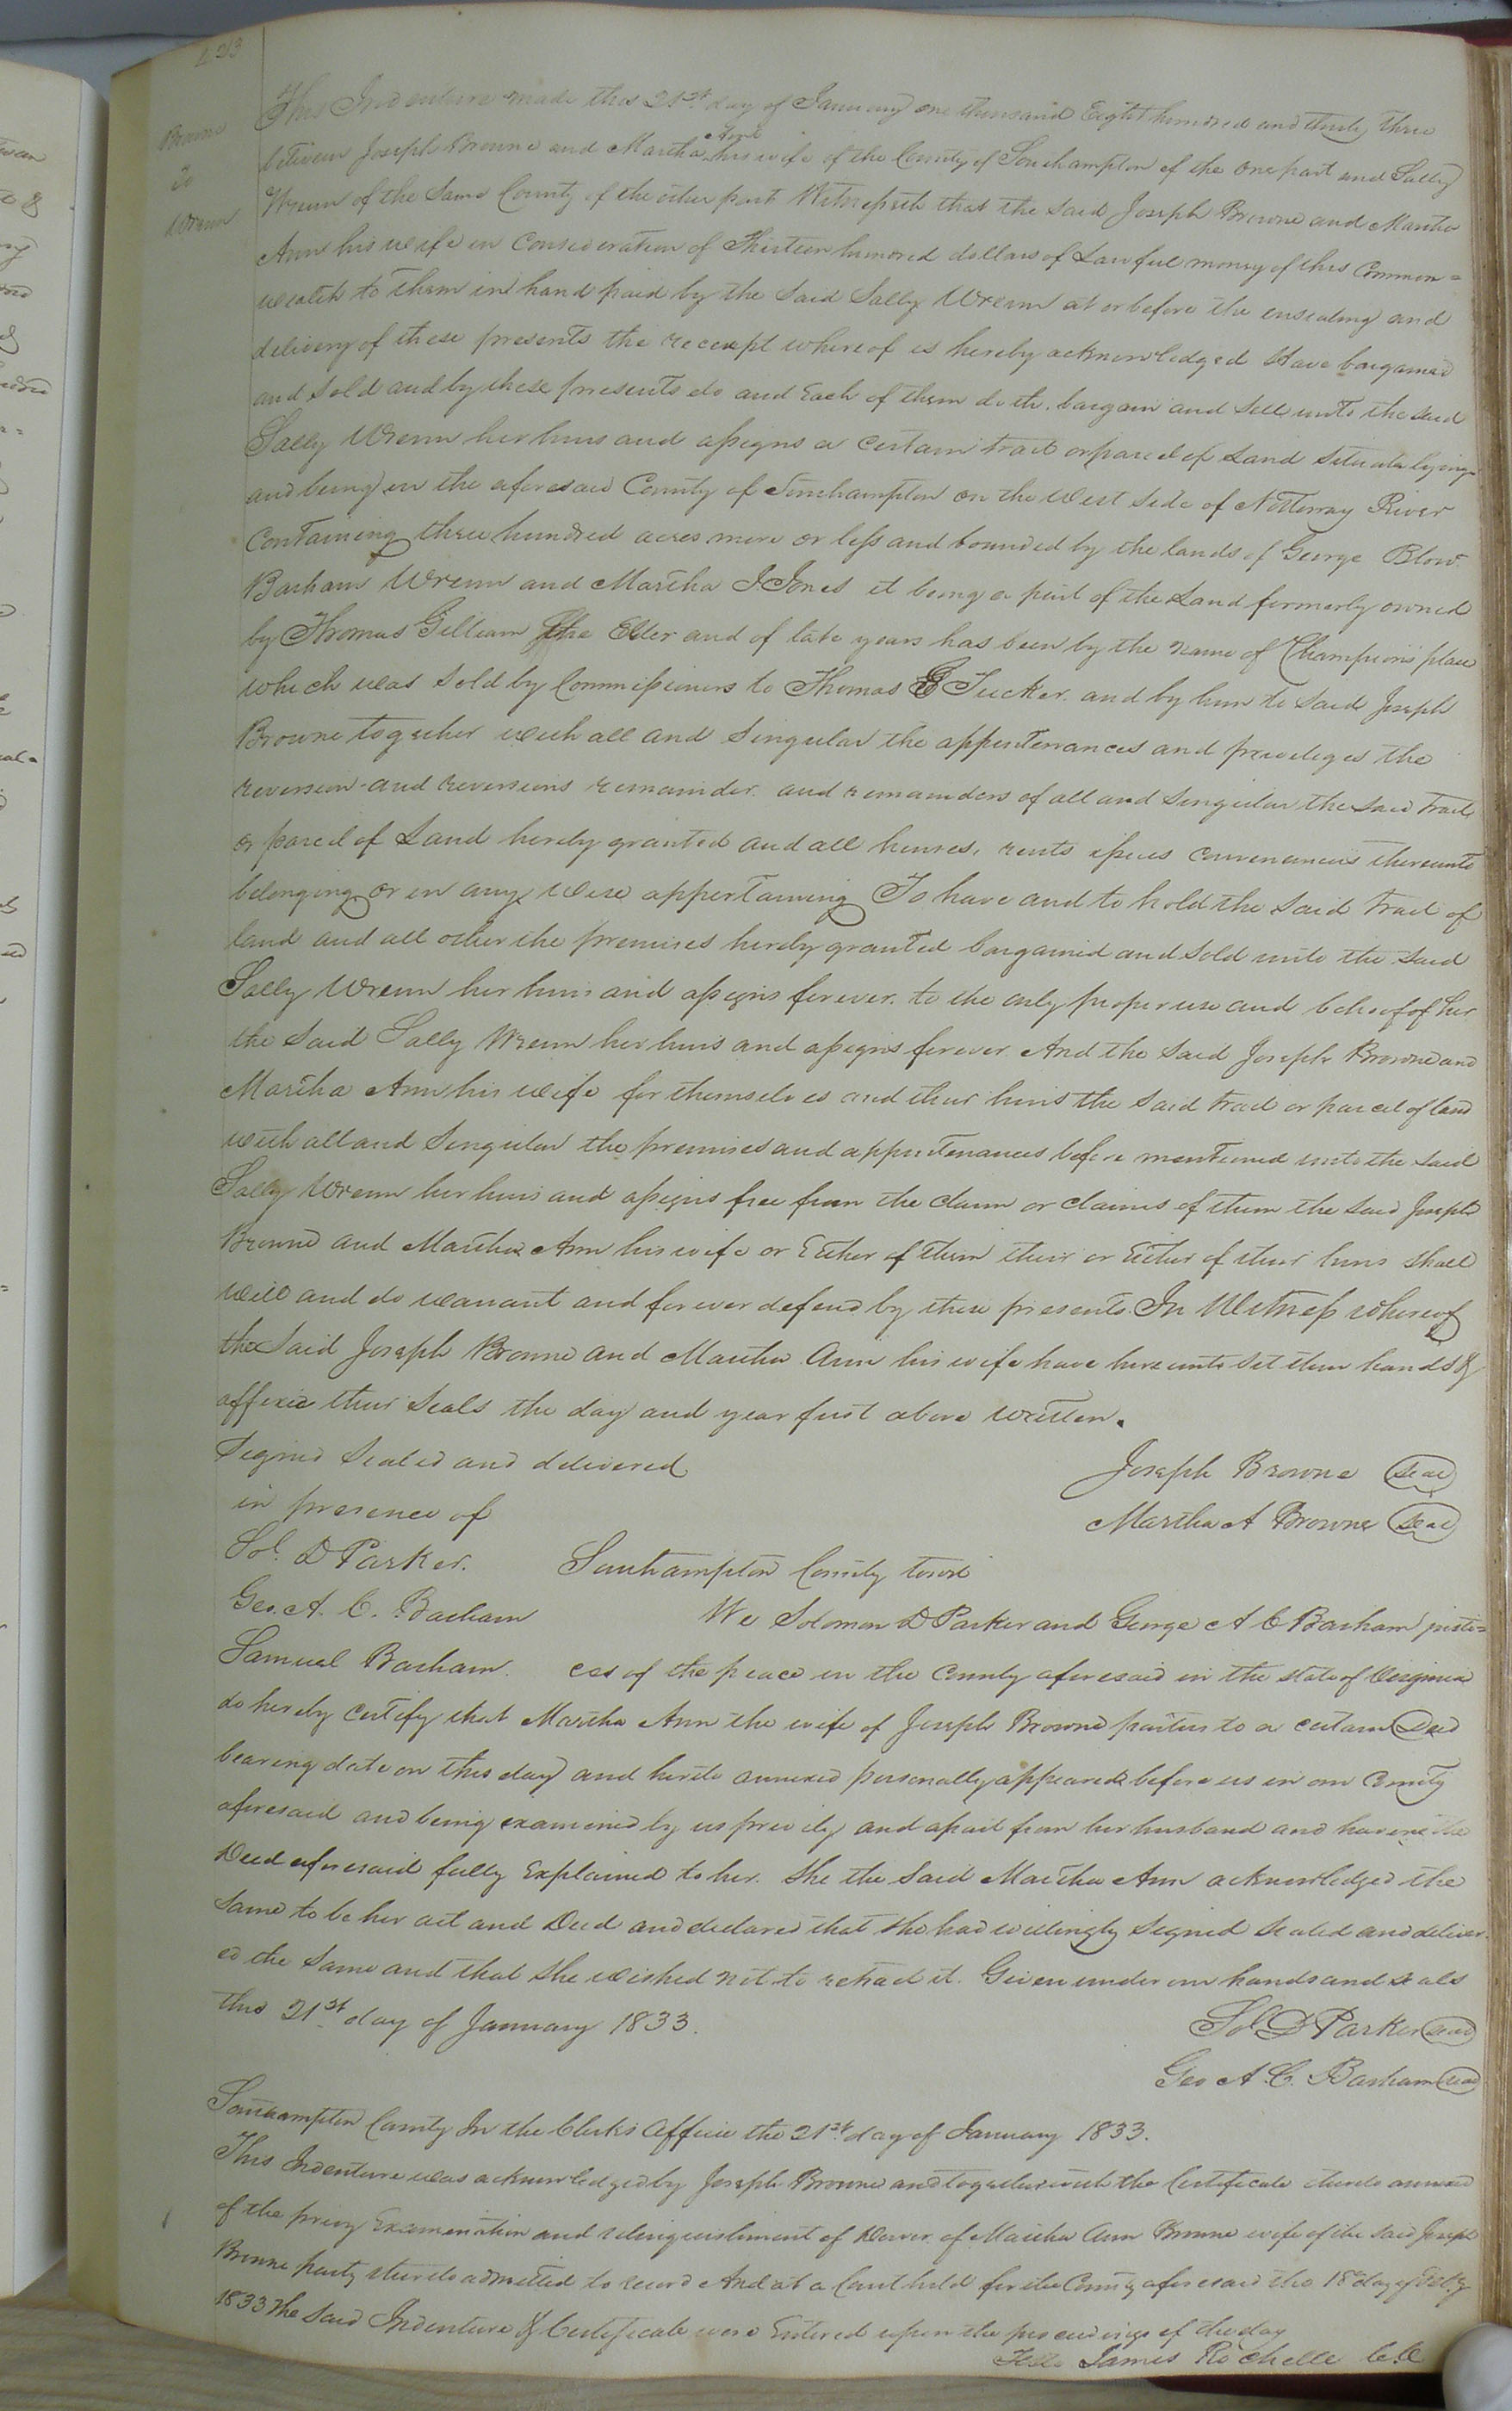 423
Browne
To
Wrenn
This Indenture made this 21st day of January one thousand Eight hundred and thirty three
between Joseph Browne and Martha Ann his wife of the County of Southampton of the one part and Sally
Wrenn of the Same County of the other part Witnesseth that the said Joseph Browne and Martha
Ann his wife in Consideration of Thirteen hundred dollars of Lawful money of this Common=
wealth to them in hand paid by the Said Sally Wrenn at or before the ensealing and
delivery of these presents the receipt whereof is hereby acknowledged Have bargained
and Sold and by these presents do and Each of them doth bargain and Sell unto the said
Sally Wrenn her heirs and assigns a Certain tract or parcel of Land Situate lying
and being in the aforesaid County of Southampton on the West Side of Nottoway River
Containing three hundred acres more or less and bounded by the lands of George Blow
Barham Wrenn and Martha J Jones it being a part of the Land formerly owned
by Thomas Gilliam the Elder and of late years has been by the name of Champions place
which was Sold by Commissioners to Thomas G Tucker and by him to Said Joseph
Browne together with all and Singular the appurtenances and priveleges the
reversion and reversions remainder and remainders of all and Singular the said tract
or parcel of Land hereby granted and all houses, rents issues conveniences thereunto
belonging or in any wise appertaining To have and to hold the Said tract of
land and all other the premises hereby granted bargained and Sold unto the Said
Sally Wrenn her heirs and assigns forever to the only proper use and behoof of her
the Said Sally Wrenn her heirs and assigns forever And the Said Joseph Browne and
Martha Ann his wife for themselves and their heirs the Said tract or parcel of land
with all and Singular the premises and appurtenances before mentioned unto the Said
Sally Wrenn her heirs and assigns free from the claim or claims of them the Said Joseph
Browne and Martha Ann his wife or Either of them their or Either of their heirs Shall
Will and do warrant and forever defend by these presents In Witness whereof
the Said Joseph Browne and Martha Ann his wife have hereunto Set their hands &
affixed their Seals the day and year first above written.
Signed Sealed and delivered
in presence of
Joseph Browne Seal
Martha A Browne Seal
Sol. D Parker.
Geo. A. C. Barham
Samuel Barham.
Southampton County towit
We Solomon D Parker and George A C Barham justi=
ces of the peace in the County aforesaid in the state of Virginia
do hereby Certify that Martha Ann the wife of Joseph Browne parties to a certain Deed
bearing date on this day and hereto annexed personally appeared before us in our County
aforesaid and being examined by us privily and apart from her husband and having the
Deed aforesaid fully Explained to her. She the Said Martha Ann acknowledged the
Same to be her act and Deed and declared that She had willingly Signed Sealed and deliver=
ed the Same and that She wished not to retract it. Given under our hands and Seals
this 21st day of January 1833.
Sol D Parker Seal
Geo A. C. Barham Seal
Southampton County In the Clerks Office the 21st day of January 1833.
This Indenture was acknowledged by Joseph Browne and together with the Certificate thereto annexed
of the privy Examination and relinquishment of Dower of Martha Ann Browne wife of the Said Joseph
Browne party thereto admitted to record And at a Court held for the County aforesaid the 18th day of Feby
1833 The Said Indenture & Certificate were Entered upon the proceedings of the day
Teste James Rochelle C.C